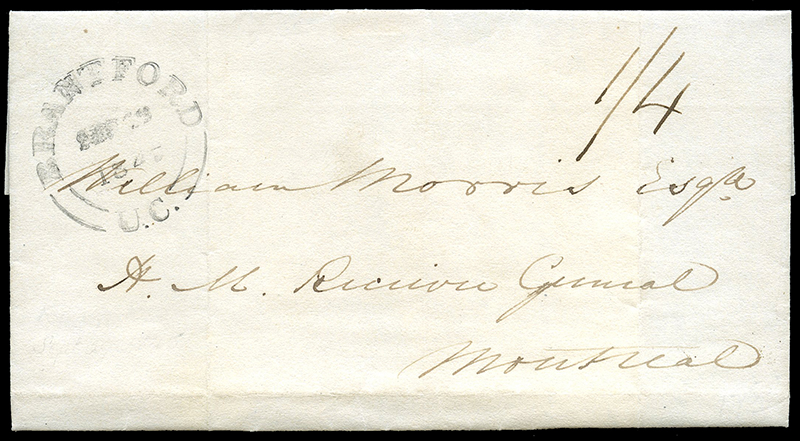 1/4
BRANTFORD
SEP
U.C.
William Morris Esqre
H. M. Receiver General
Montreal